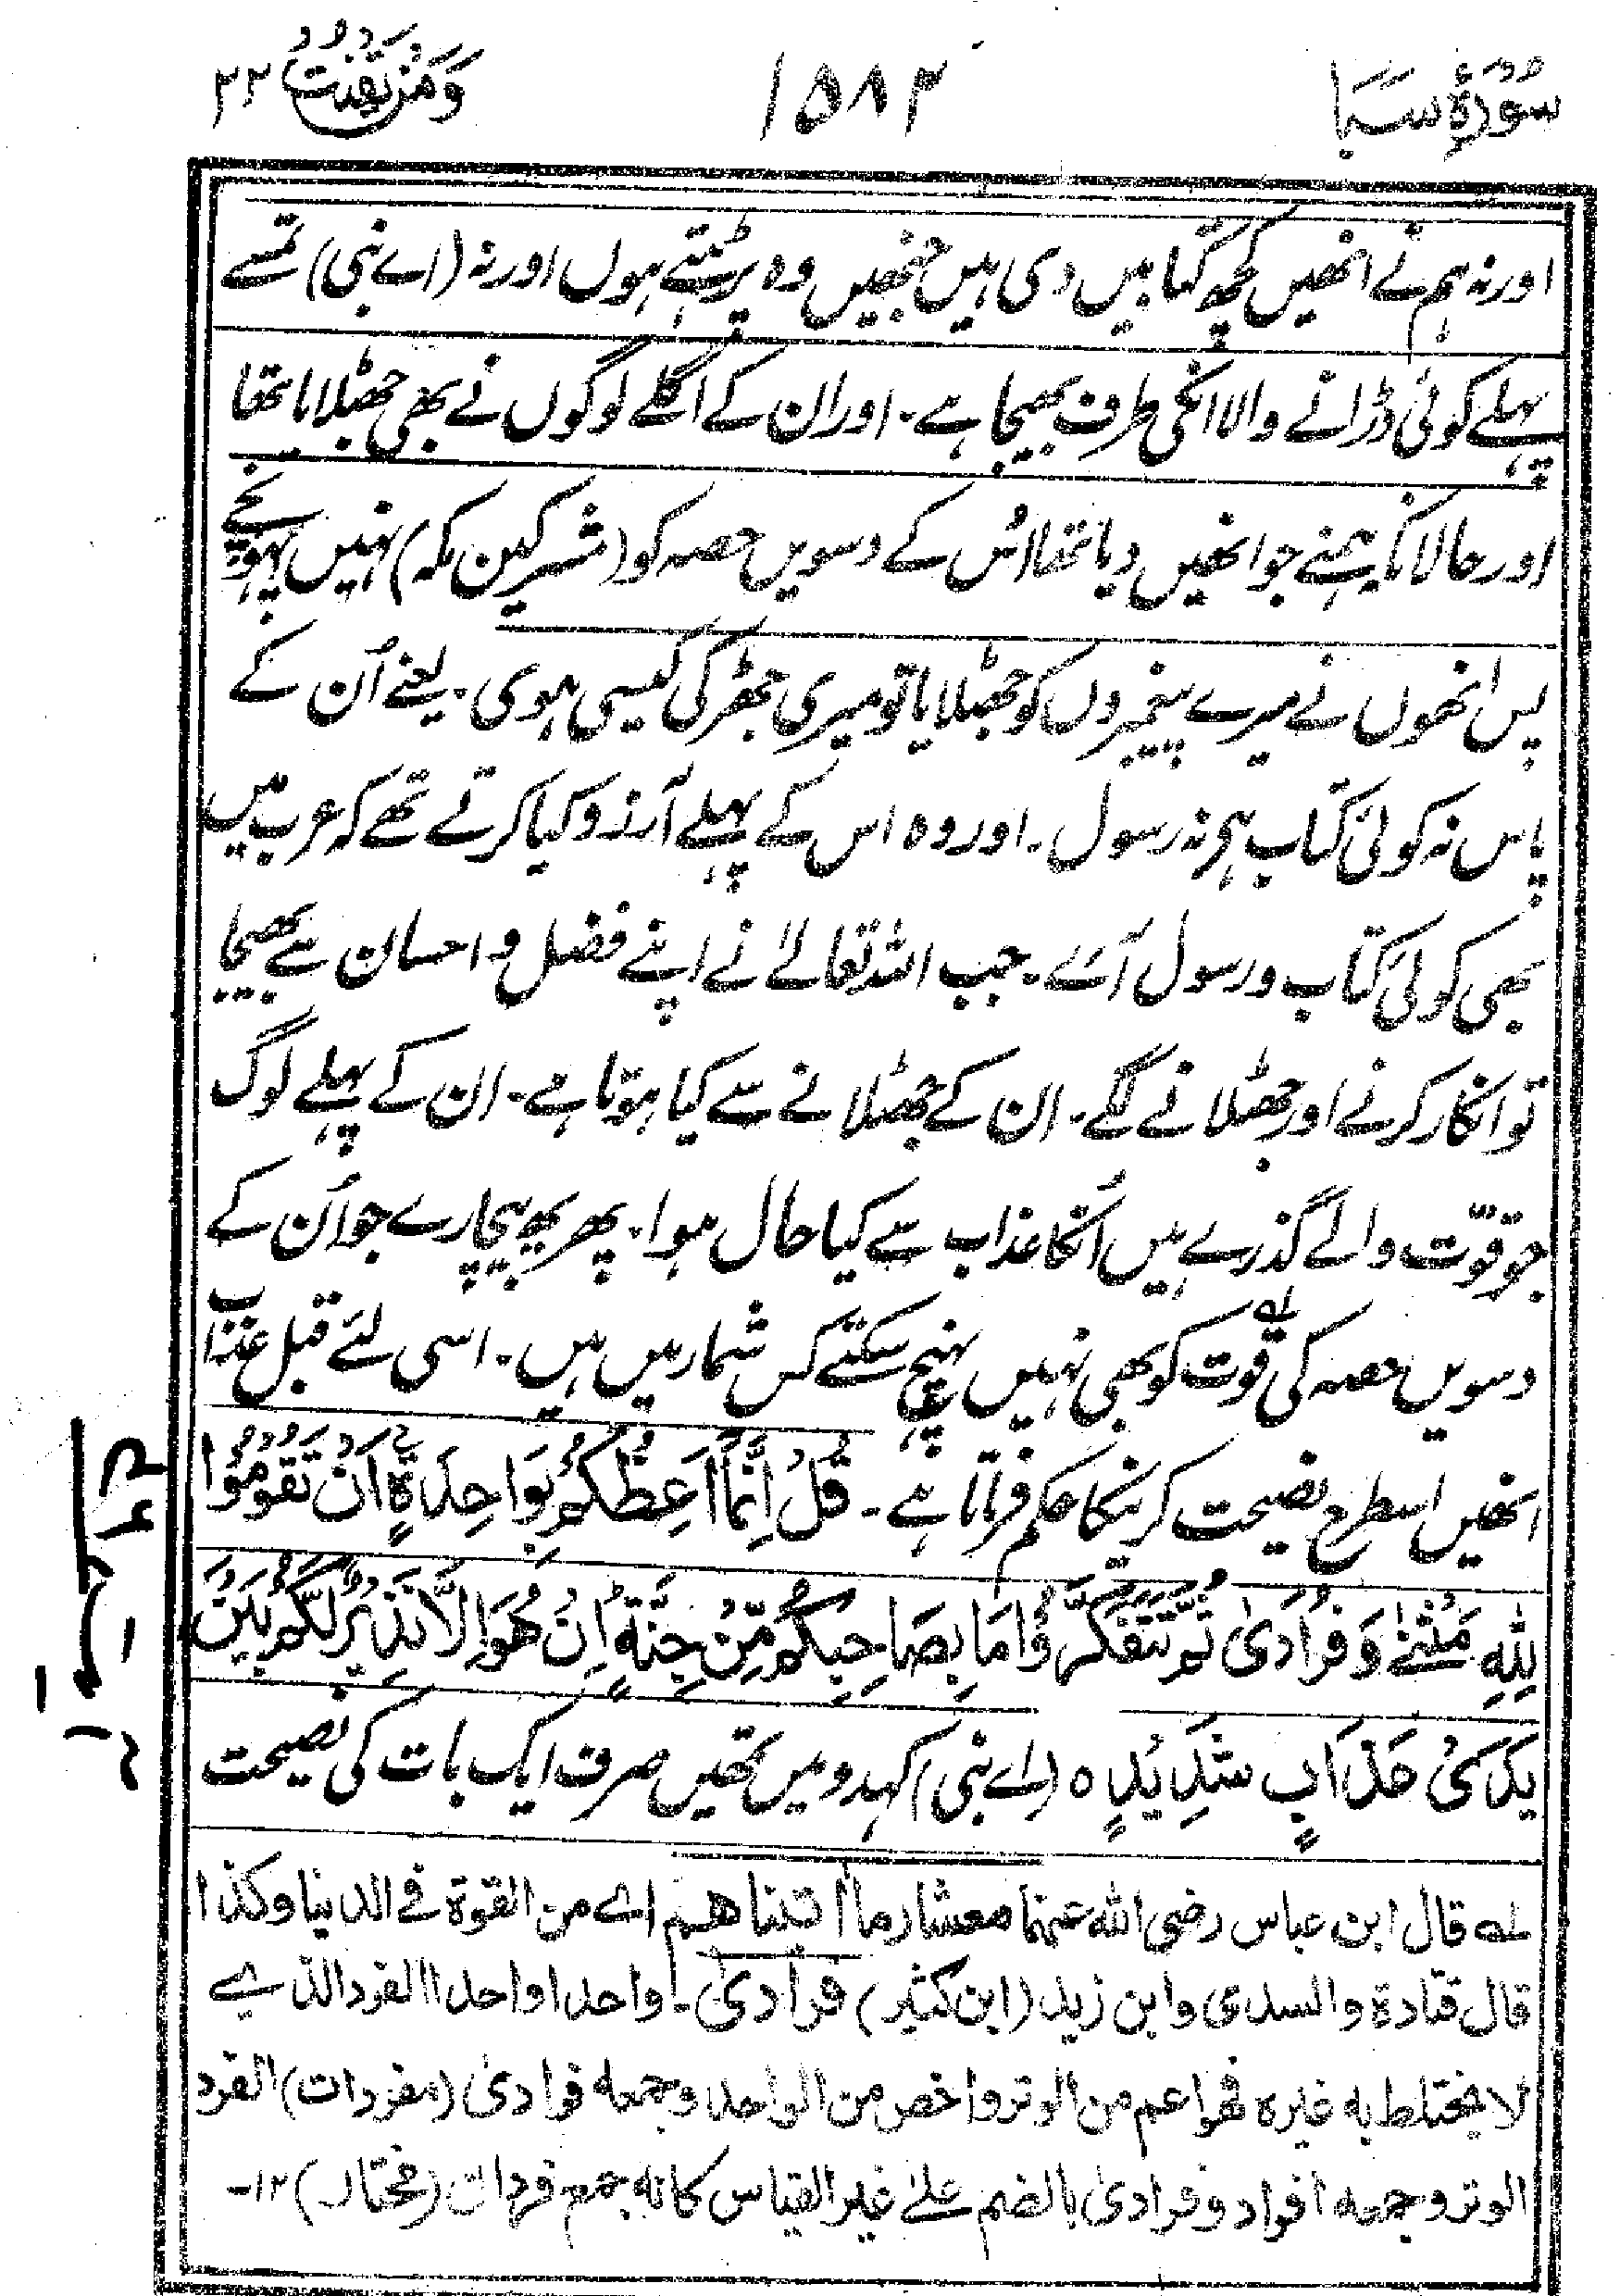 سُوْرَةُ سَبَا ۱۵۸۲ وَمَنْ يَّقْنُتْ ۲۲
اور نہ ہم نے انھیں کچھ کتابیں دی ہیں جنھیں وہ پڑہتے ہوں اور نہ (اے نبی) تمسے
پہلے کوئی ڈرانے والا انکی طرف بھیجا ہے۔ اور ان کے اگلے لوگوں نے بھی جھٹلایا تھا
اور حالانکہ ہمنے جو انھیں دیا تھا اُس کے دسویں حصہ کو (مشرکین مکہ) نہیں پہونچے
پس انھوں نے میرے پیغمبروں کو جھٹلایا تو میری جھڑکی کیسی ہوی۔ یعنے اُن کے
پاس نہ کوئی کتاب ہی نہ رسول۔ اور وہ اس کے پہلے آرزو کیا کرتے تھے کہ عرب میں
بھی کوئی کتاب و رسول آے۔ جب اللہ تعالےٰ نے اپنے فضل و احسان سے بھیجا
تو انکار کرنے اور جھٹلانے لگے۔ ان کے جھٹلانے سے کیا ہوتا ہے۔ ان کے پہلے لوگ
جو قوّت والے گذرے ہیں اُنکا عذاب سے کیا حال ہوا۔ پھر یہ بیچارے جو اُن کے
دسویں حصہ کی قوت کو بھی نہیں پہنچ سکتے کس شمار میں ہیں۔ اسی لئے قبل عذاب
انھیں اسطرح نصیحت کرنیکا حکم فرماتا ہے۔ قُلْ اِنَّمَآ اَعِظُكُمْ بِوَاحِدَةٍ اَنْ تَقُوْمُوْا
لِلّٰهِ مَثْنٰى وَفُرَادٰى ثُمَّ تَتَفَكَّرُوْا مَا بِصَاحِبِكُمْ مِّنْ جِنَّةٍ اِنْ هُوَ اِلَّا نَذِيْرٌ لَّكُمْ بَيْنَ
يَدَىْ عَذَابٍ شَدِيْدٍ ہ (اے نبی) کہدو میں تمھیں صرف ایک بات کی نصیحت
لہ قال ابن عباس رضی اللہ عنهما معشار ما اٰتيناهم اے من القوة فے الدنيا وكذا
قال قتادة والسدی وابن زيد (ابن كثير) فرادیٰ۔ واحدا واحدا الفرد الذے
لا يختلط به غيره فهو اعم من الوتر واخص من الواحد وجمعه فرادیٰ (مفردات) الفرد
الوتر وجمعه افراد وفرادیٰ بالضم علےٰ غير القياس كانه جمع فردان (مختار) ۱۲-